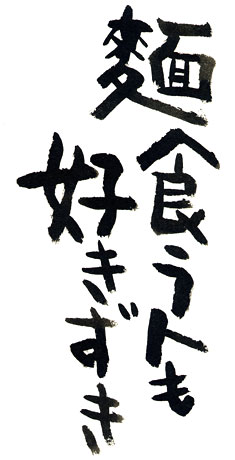 麺食う人も
好きずき